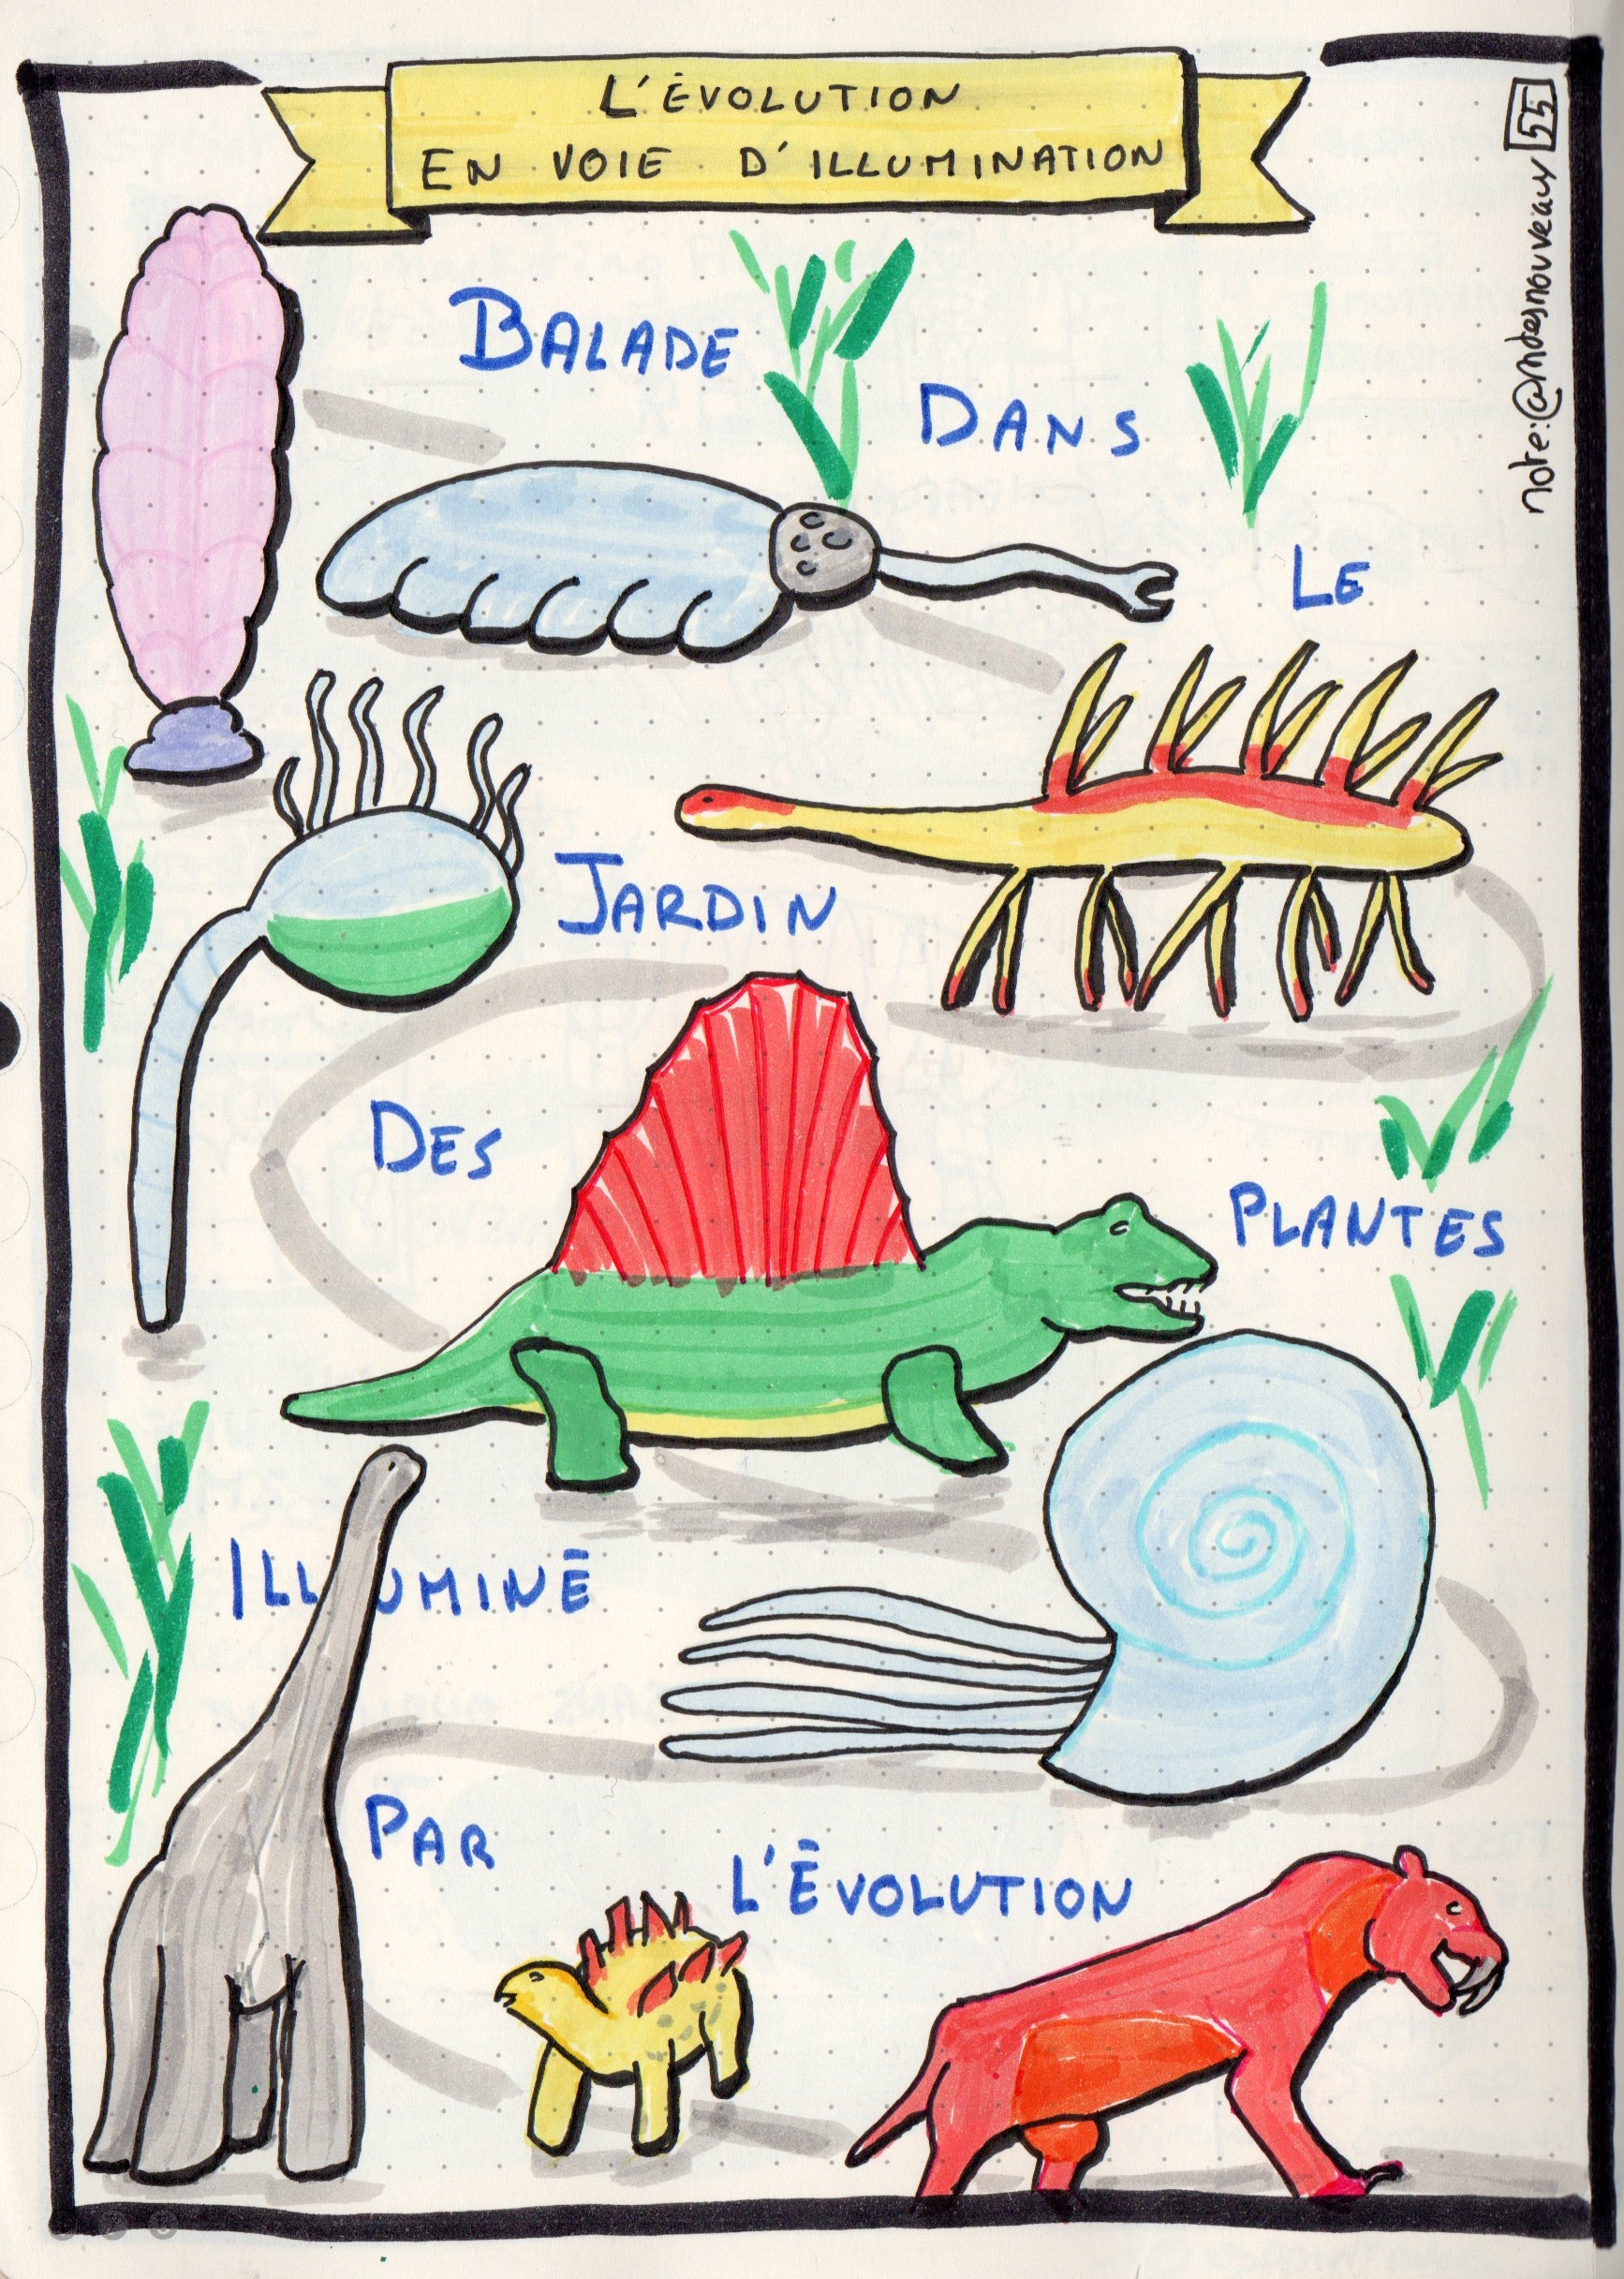 L'ÉVOLUTION
EN VOIE D'ILLUMINATION
note:@mdesnouveaux 55
BALADE
DANS
LE
JARDIN
DES
PLANTES
ILLUMINÉ
PAR
L'ÉVOLUTION